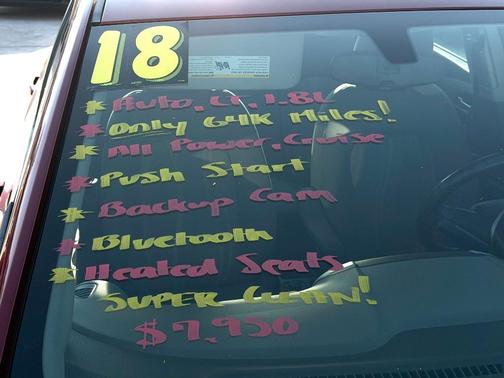 18
* Auto, LT, 1.8L
* Only 64K Miles!
* All Power, Cruise
* Push Start
* Backup Cam
* Bluetooth
* Heated Seats
SUPER CLEAN!
$7,950